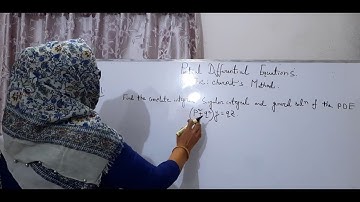 Partial Differential Equations.
Charpit's Method.
Find the complete integral, Singular integral and general solⁿ of the PDE
(p²+q²)y = qz